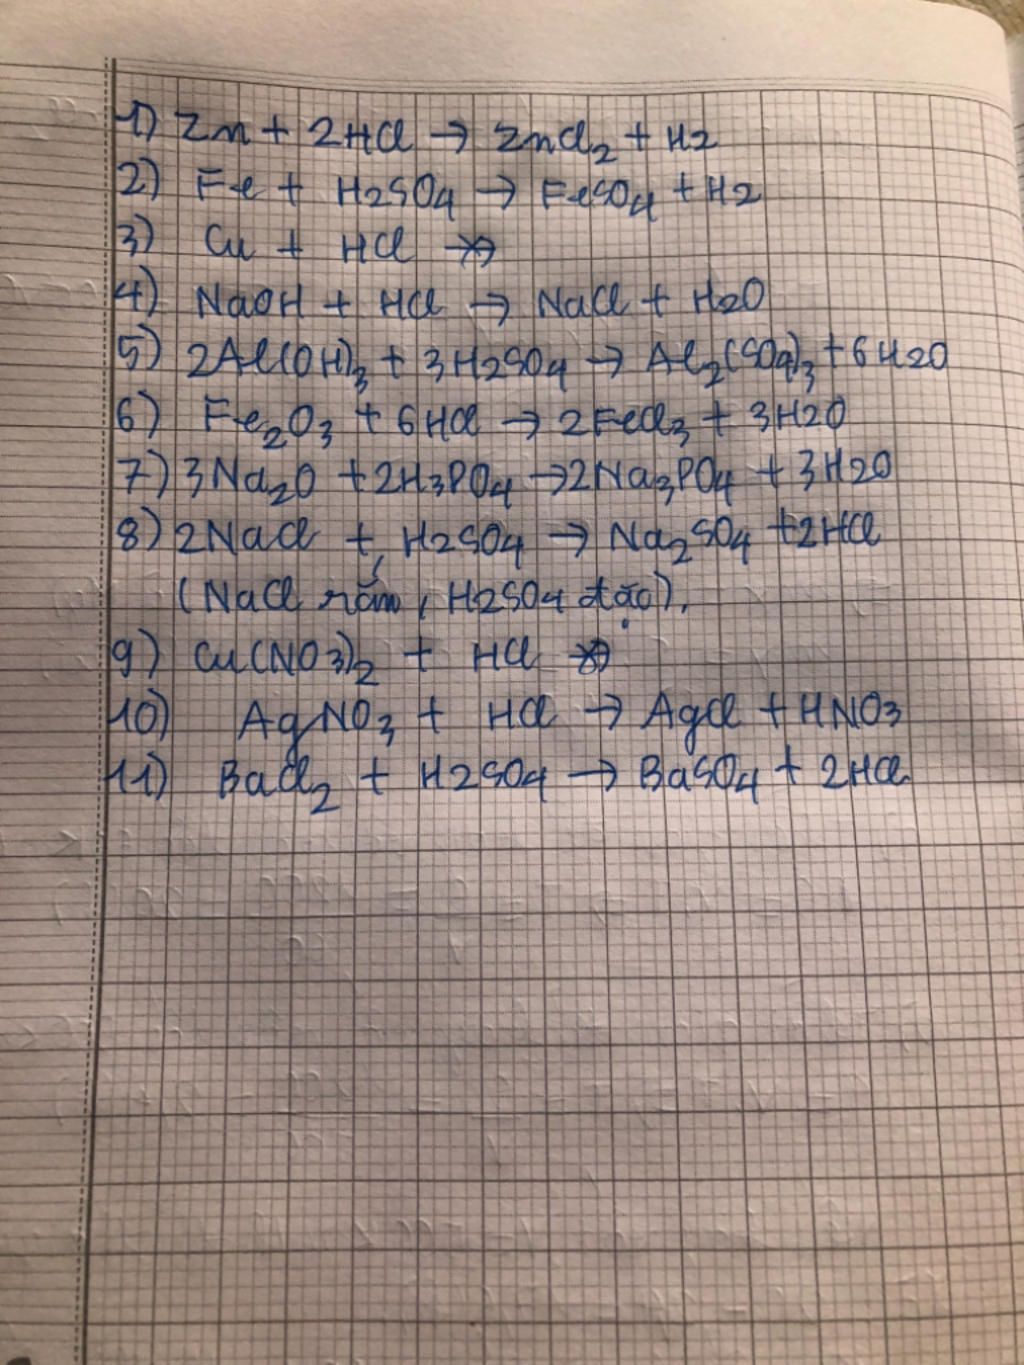 1) Zn + 2HCl → ZnCl₂ + H2
2) Fe + H2SO4 → FeSO4 + H2
3) Cu + HCl ↛
4) NaOH + HCl → NaCl + H2O
5) 2Al(OH)₃ + 3H2SO4 → Al₂(SO4)₃ + 6H2O
6) Fe₂O₃ + 6HCl → 2FeCl₃ + 3H2O
7) 3Na₂O + 2H3PO4 → 2Na₃PO4 + 3H2O
8) 2NaCl + H2SO4 → Na₂SO4 + 2HCl
(NaCl rắn, H2SO4 đặc).
9) Cu(NO3)₂ + HCl ↛
10) AgNO₃ + HCl → AgCl + HNO3
11) BaCl₂ + H2SO4 → BaSO4 + 2HCl